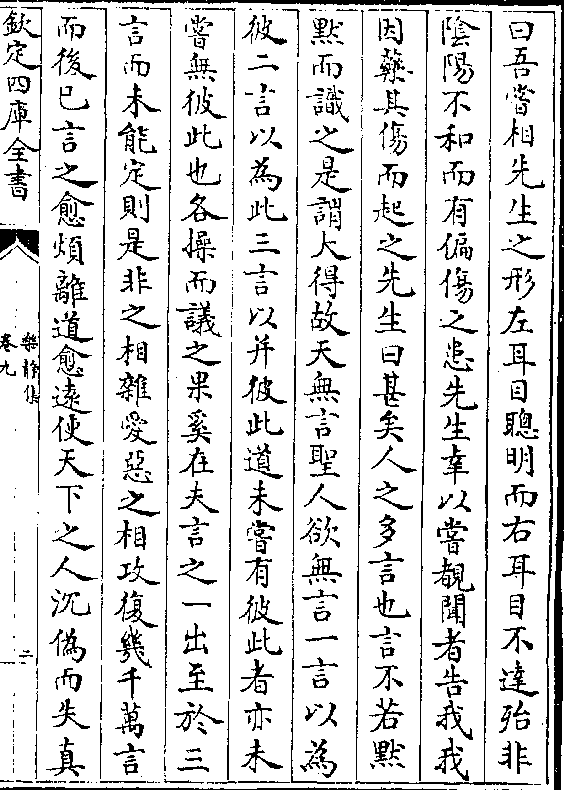 曰吾嘗相先生之形左耳目聰明而右耳目不達殆非
陰陽不和而有偏傷之患先生幸以嘗覩聞者告我我
因藥其傷而起之先生曰甚矣人之多言也言不若黙
黙而識之是謂大得故天無言聖人欲無言一言以為
彼二言以為此三言以并彼此道未嘗有彼此者亦未
嘗無彼此也各操而議之果奚在夫言之一出至於三
言而未能定則是非之相雜愛惡之相攻復幾千萬言
而後已言之愈煩離道愈逺使天下之人沉偽而失真
欽定四庫全書
樂靜集
卷九
二